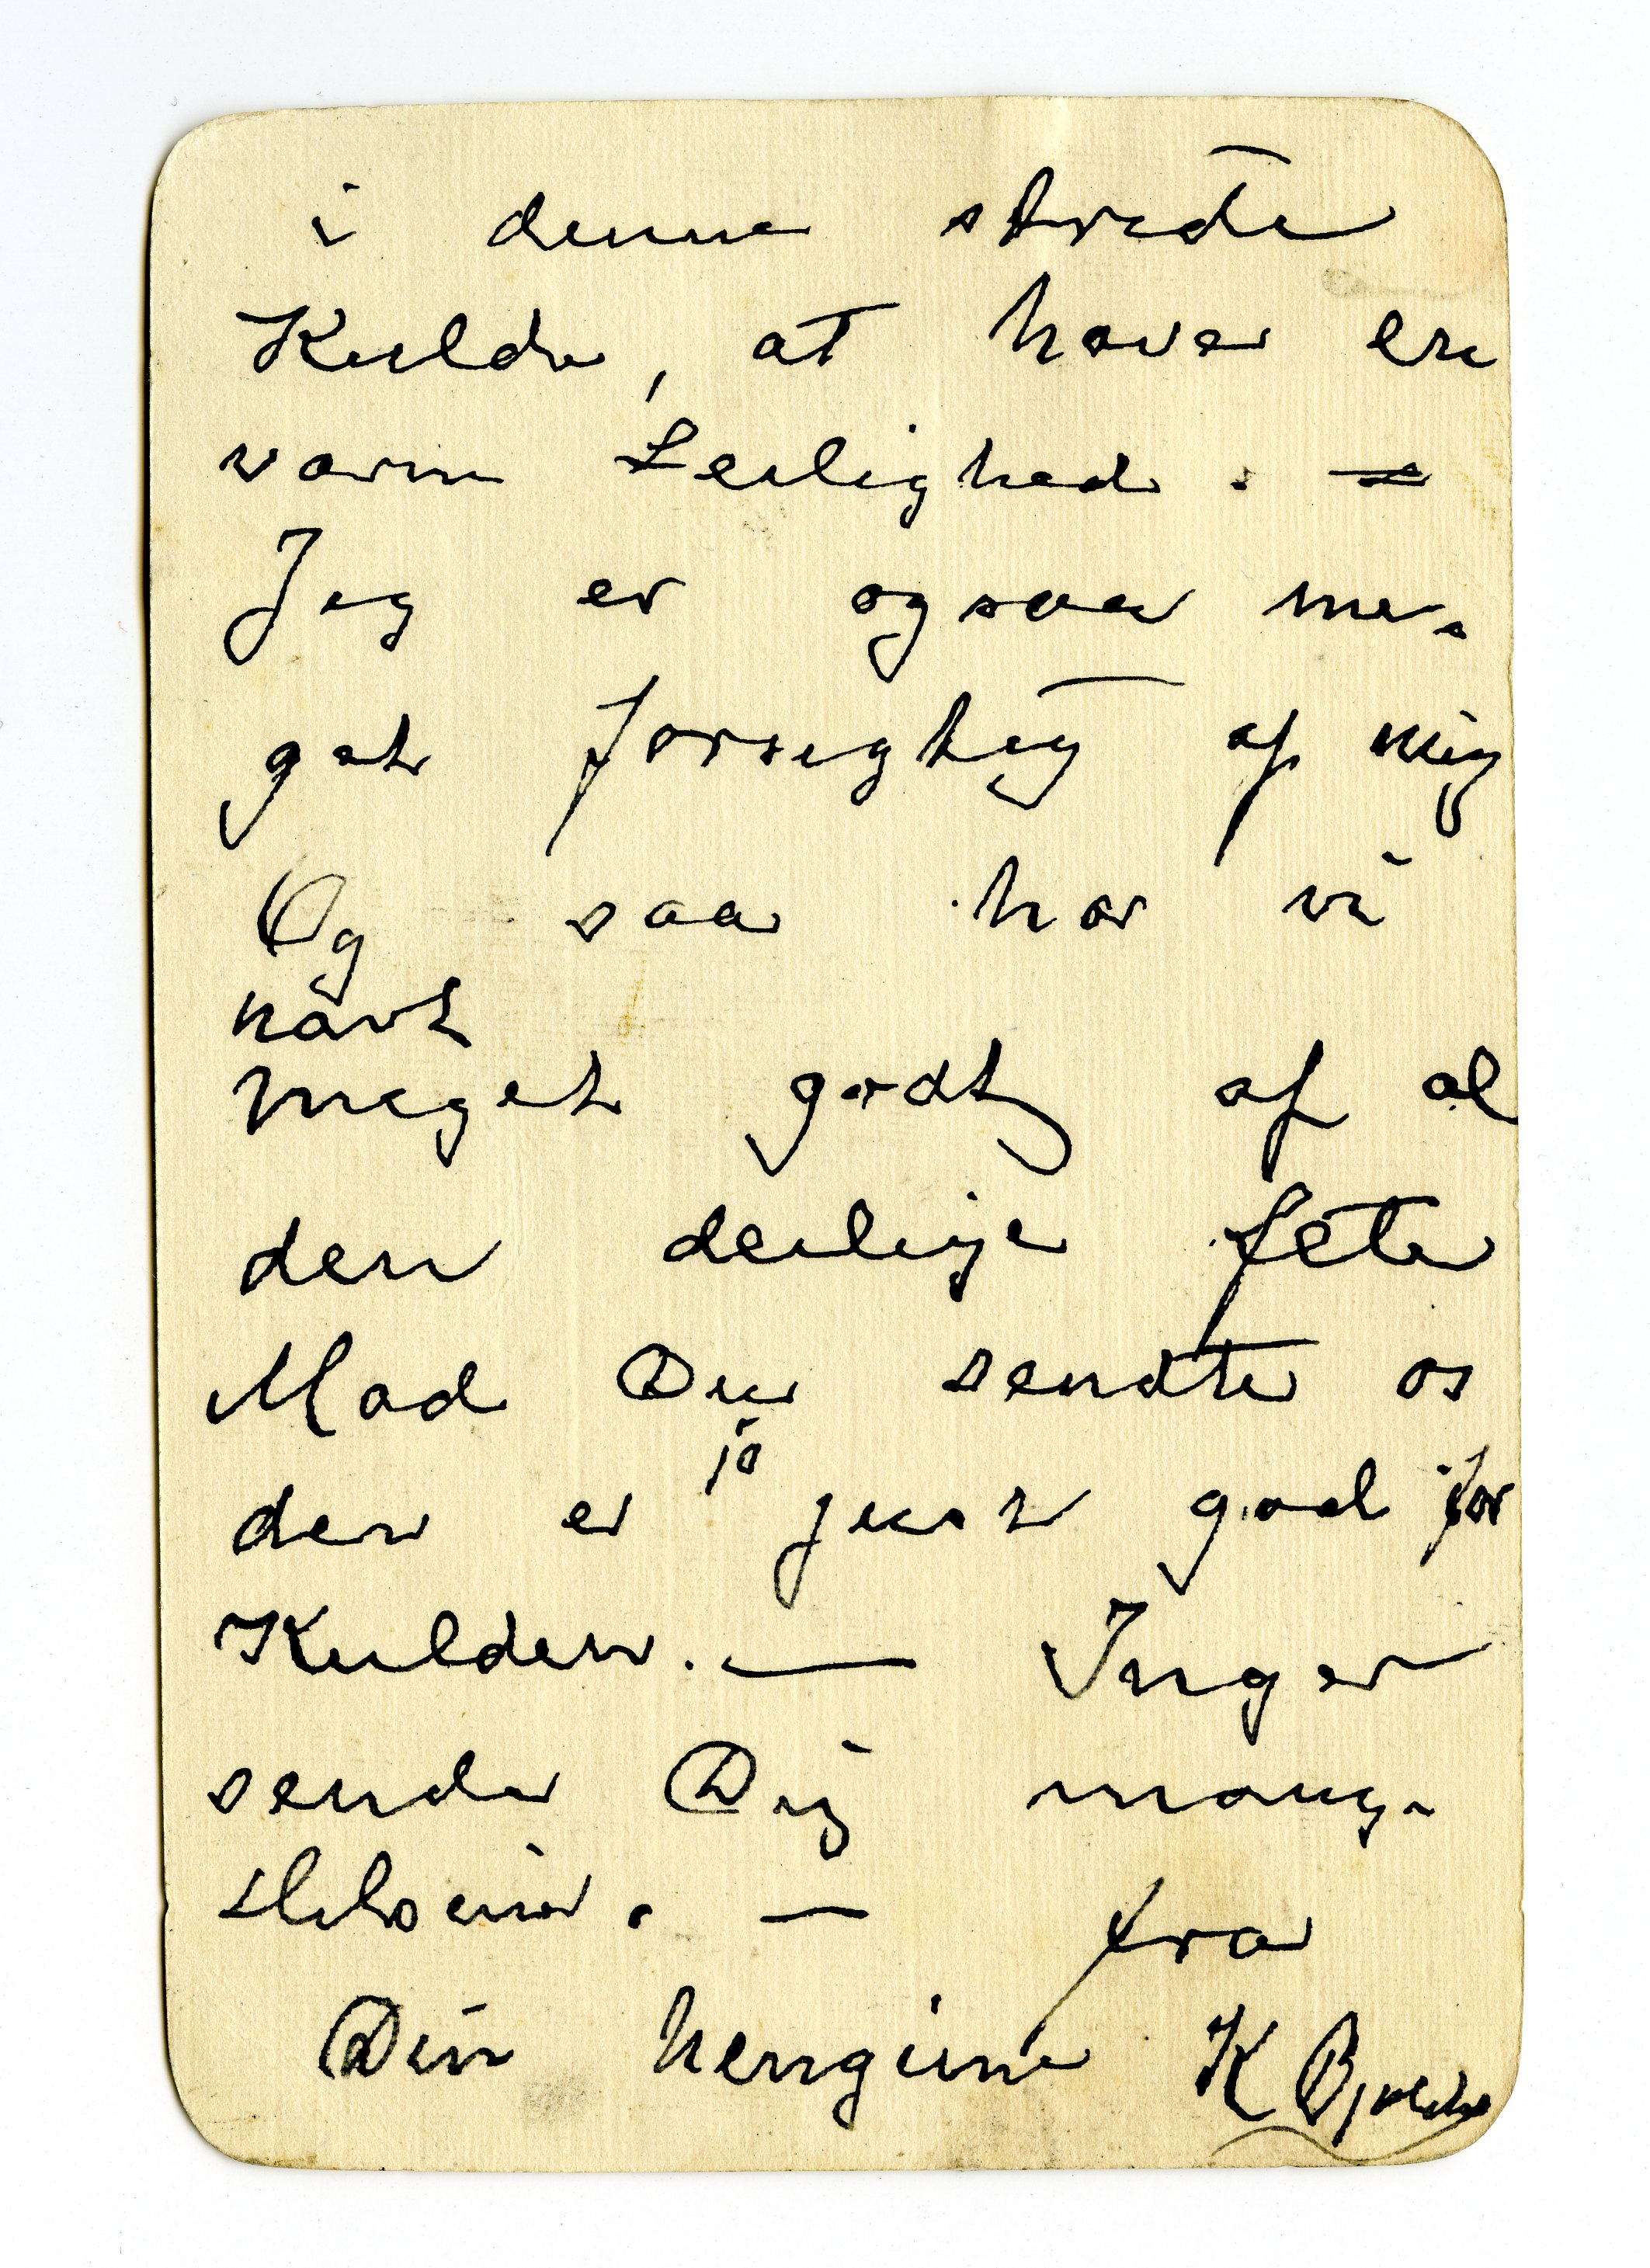 i denne
Kulde, at have en
varm Leilighed. =
Jeg er ogsaa me-
get forsigtig af mig
Og saa har vi
havt
meget godt af al
den deilige fete
Mad Du sendte os
den er ja just god for
Kulden. — Inger
sender Dig mange
Hilsener. — fra
Din hengivne K